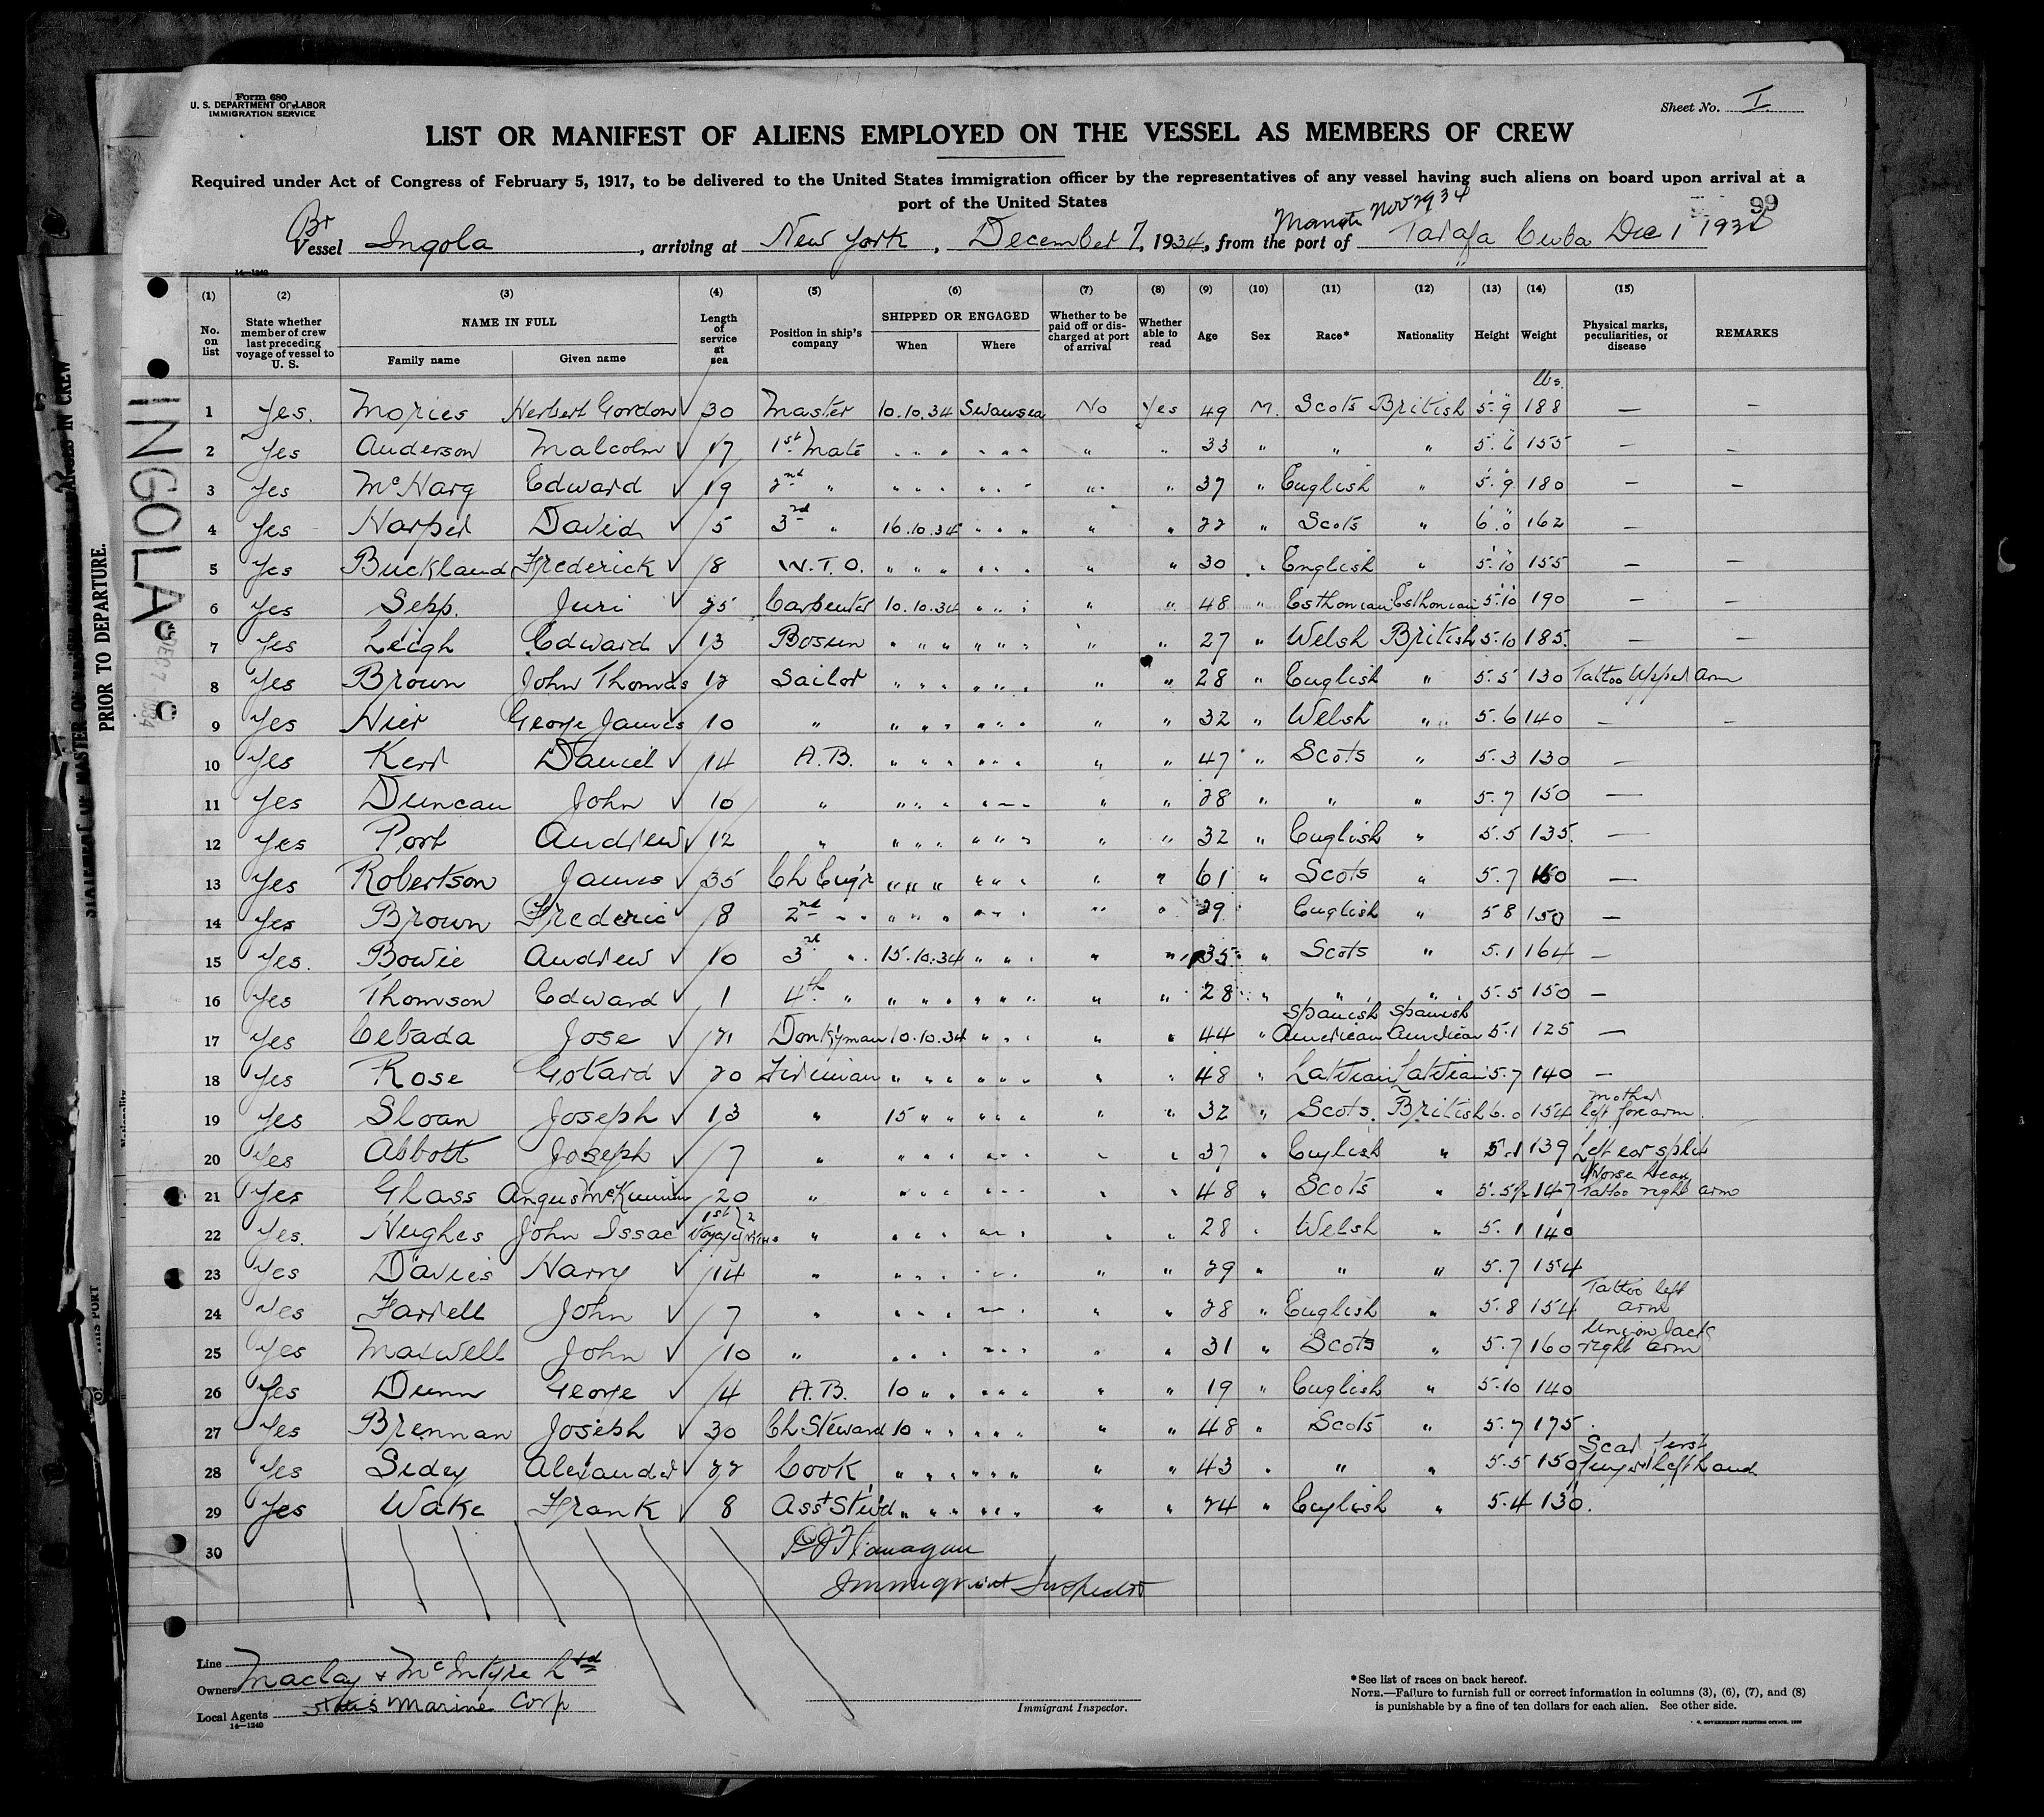 Form 680
U. S. DEPARTMENT OF LABOR
IMMIGRATION SERVICE
Sheet No. I
LIST OR MANIFEST OF ALIENS EMPLOYED ON THE VESSEL AS MEMBERS OF CREW
Required under Act of Congress of February 5, 1917, to be delivered to the United States immigration officer by the representatives of any vessel having such aliens on board upon arrival at a
port of the United States
99
Br Manati Nov 29 34
Vessel Ingola, arriving at New York, December 7, 1934, from the port of Tarafa Cuba Dec 1 193
14—1240
(1) (2) (3) (4) (5) (6) (7) (8) (9) (10) (11) (12) (13) (14) (15)
No. on list State whether member of crew last preceding voyage of vessel to U. S. NAME IN FULL Family name Given name Length of service at sea Position in ship's company SHIPPED OR ENGAGED When Where Whether to be paid off or discharged at port of arrival Whether able to read Age Sex Race* Nationality Height Weight Physical marks, peculiarities, or disease REMARKS
lbs.
1 Yes. Mories Herbert Gordon ✓ 30 Master 10.10.34 Swansea No Yes 49 M. Scots British 5'.9" 188 — —
2 Yes Anderson Malcolm ✓ 17 1st Mate " " " " " " " " 33 " " " 5'.6" 155 — —
3 Yes McHarg Edward ✓ 19 2nd " " " " " " " " " 37 " English " 5'.9" 180 — —
4 Yes Harper David ✓ 5 3rd " 16.10.34 " " " " " 22 " Scots " 6'.0" 162 —
5 Yes Buckland Frederick ✓ 8 W.T.O. " " " " " " " " 30 " English " 5'.10" 155 — —
6 Yes Sepp. Juri ✓ 25 Carpenter 10.10.34 " " " " " 48 " Esthonian Esthonian 5'.10" 190 — —
7 Yes Leigh Edward ✓ 13 Bosun " " " " " " " " 27 " Welsh British 5.10 185. — —
8 Yes Brown John Thomas 12 Sailor " " " " " " " " 28 " English " 5.5 130 Tattoo Upper Arm
9 Yes Hier George James 10 " " " " " " " " " 32 " Welsh " 5.6 140 — —
10 Yes Kerr Daniel ✓ 14 A.B. " " " " " " " " 47 " Scots " 5.3 130 —
11 Yes Duncan John ✓ 10 " " " " " " " " " 28 " " " 5.7 150 —
12 Yes Port Andrew ✓ 12 " " " " " " " " " 32 " English " 5.5 135. —
13 Yes Robertson James ✓ 35 Ch Eng'r " " " " " " " " 61 " Scots " 5.7 160 —
14 Yes Brown Frederic ✓ 8 2nd " " " " " " " " " 29 English " 5 8 150 —
15 Yes. Bowie Andrew ✓ 10 3rd " 15.10.34 " " " " " 35 " Scots " 5.1 164 —
16 Yes Thomson Edward ✓ 1 4th " " " " " " " " " 28 " " " 5.5 150 —
17 Yes Cebada Jose ✓ 21 Donkyman 10.10.34 " " " " " 44 " Spanish American Spanish American 5.1 125 —
18 Yes Rose Gotard ✓ 20 Fireman " " " " " " " " 48 " Latvian Latvian 5.7 140 —
19 Yes Sloan Joseph ✓ 13 " 15 " " " " " " " 32 " Scots. British 6.0 154 mother left forearm.
20 Yes Abbott Joseph ✓ 7 " " " " " " " " " 37 " English " 5.1 139 Left ear split
21 Yes Glass Angus 20 " " " " " " " " " 48 " Scots " 5.5½ 147 Horse Head Tattoo right arm
22 Yes. Hughes John Issac 1st Voyage 2 " " " " " " " " " 28 " Welsh " 5.1 140
23 Yes Davies Harry ✓ 14 " " " " " " " " " 29 " " " 5.7 154
24 Yes Farrell John ✓ 7 " " " " " " " " " 28 " English " 5.8 154 Tattoo left arm
25 Yes Maxwell John ✓ 10 " " " " " " " " " 31 " Scots " 5.7 160 Union Jack right arm
26 Yes Dunn George ✓ 4 A.B. 10 " " " " " " " 19 " English " 5.10 140
27 Yes Brennan Joseph ✓ 30 Ch Steward 10 " " " " " " " 48 " Scots " 5.7 175.
28 Yes Sidey Alexander ✓ 22 Cook " " " " " " " " 43 " " " 5.5 150 Scar first finger left hand
29 Yes Wake Frank ✓ 8 Asst Stew'd " " " " " " " " 24 " English " 5.4 130.
30 Flanagan
Immigrant Inspector
Line
Owners Maclay & McIntyre Ltd
Local Agents States Marine Corp
14—1240
Immigrant Inspector.
*See list of races on back hereof.
NOTE.—Failure to furnish full or correct information in columns (3), (6), (7), and (8)
is punishable by a fine of ten dollars for each alien. See other side.
GOVERNMENT PRINTING OFFICE
INGOLA
DEC 7 1934
PRIOR TO DEPARTURE.